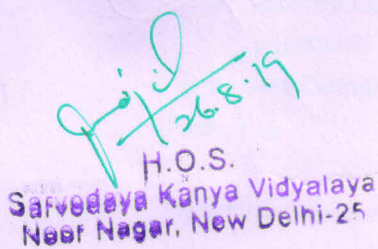 26.8.19
H.O.S.
Sarvodaya Kanya Vidyalaya
Noor Nagar, New Delhi-25